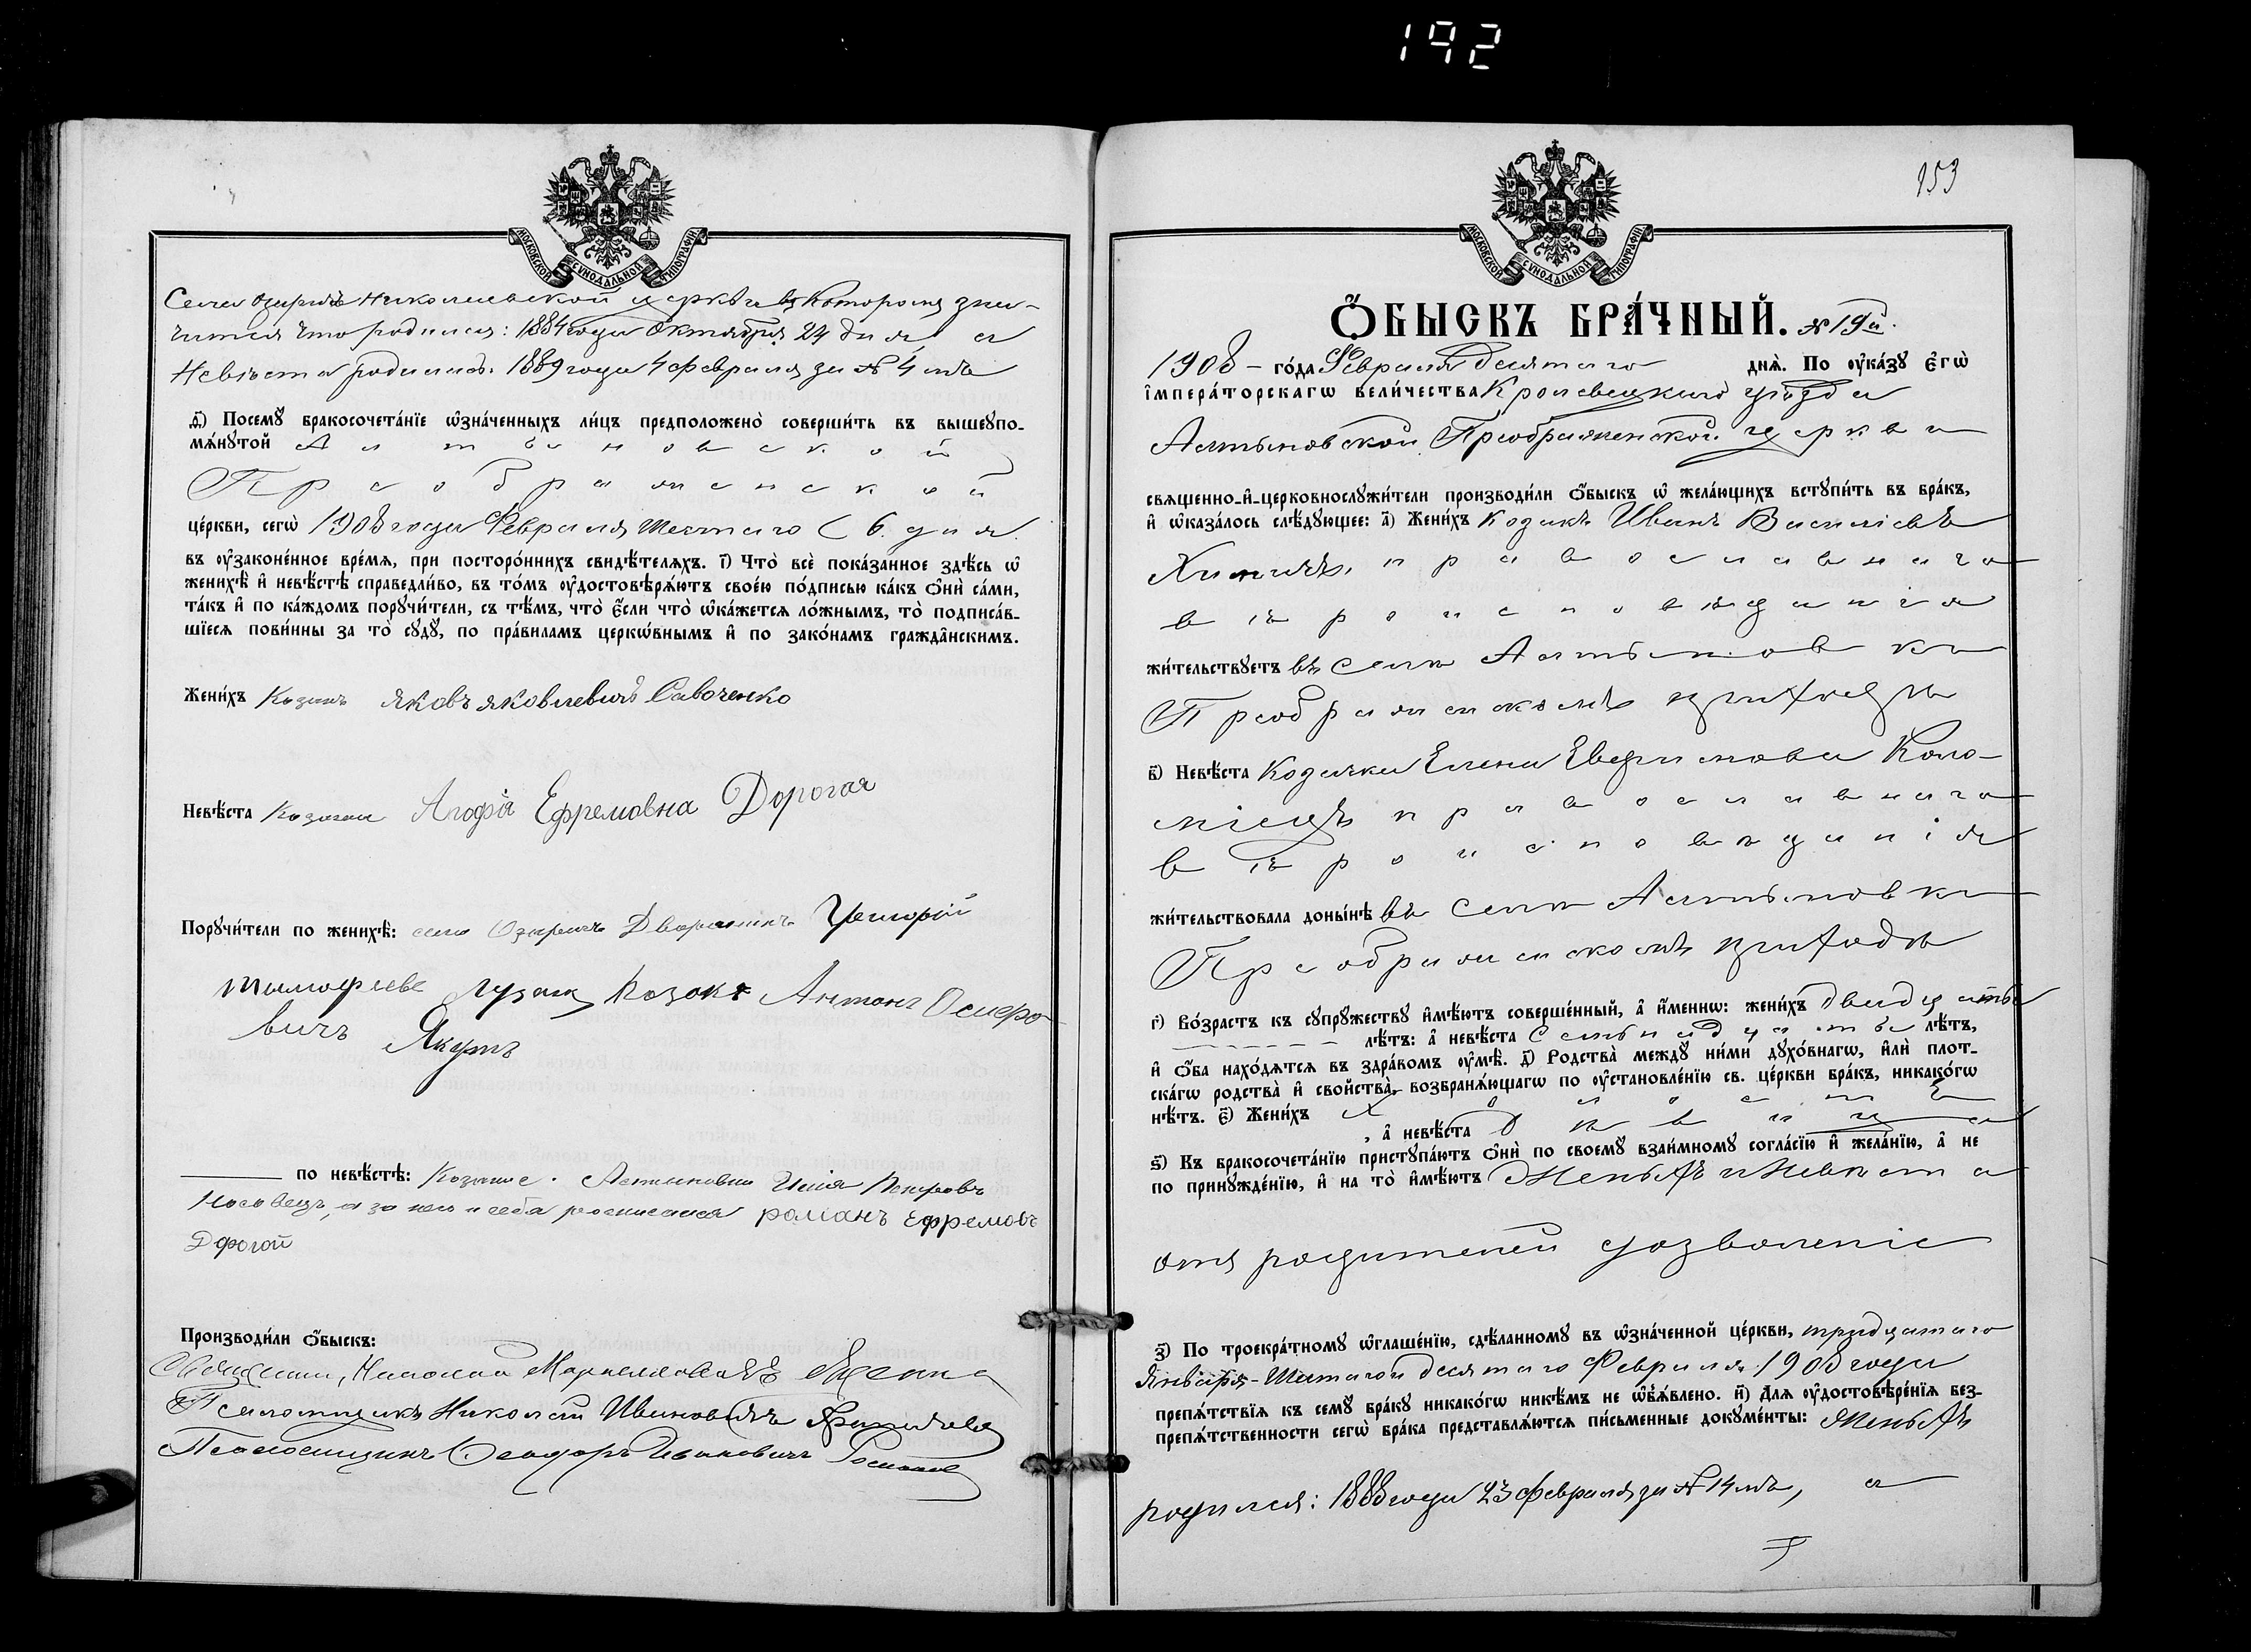 192
МОСКОВСКОЙ СУНОДАЛЬНОЙ ТИПОГРАФІИ
Села Озаричъ Николаевской церкви въ которомъ зна-
чится что родился: 1884 года Октября 24 дня, а
Невѣста родилась: 1889 года 4 февраля за № 4 мъ
д҃) Посемꙋ̀ бракосочета́нїе ѡ҆зна́ченныхъ ли́цъ предположено̀ соверши́ть въ вышеꙋпо-
мѧ́нꙋтой Алтыновской
Преображенской
це́ркви, сегѡ̀ 1908 года Февраля Шестаго (6. дня.
въ ᲂу҆зако́ненное вре́мѧ, при посторо́ннихъ свидѣ́телѧхъ. і҃) Что̀ всѐ пока́занное здѣ́сь ѡ҆
женихѣ̀ и҆ невѣ́стѣ справедли́во, въ то́мъ ᲂу҆достовѣрѧ́ютъ свое́ю по́дписью ка́къ ѻ҆нѝ са́ми,
та́къ и҆ по ка́ждомъ порꙋчи́тели, съ тѣ́мъ, что̀ є҆́сли что̀ ѡ҆ка́жетсѧ ло́жнымъ, то̀ подписа́в-
шїесѧ пови́нны за то̀ сꙋдꙋ̀, по пра́виламъ церкѡ́внымъ и҆ по зако́намъ гражда̑нскимъ.
Жени́хъ Козакъ Яковъ Яковлевичъ Савоченко
Невѣ́ста Козачка Агофія Ефремовна Дорогая
Порꙋчи́тели по женихѣ̀: села Озаричъ Дворянинъ Григорій
Тимофеевъ Козакъ Антонъ
вичъ Якутъ
по невѣ́стѣ: Козаки с. Алтыновки Илія Петровъ
Носовецъ, а за него и себя росписался романъ Ефремовъ
Дорогой
Производи́ли ѻ҆́быскъ:
Священникъ, Николай
Псаломщикъ Николай Ивановичъ
Псаломщикъ Ѳеодоръ Ивановичъ
153
МОСКОВСКОЙ СУНОДАЛЬНОЙ ТИПОГРАФІИ
Ѻ҆́БЫСКЪ БРА́ЧНЫЙ. № 19й.
1908 – го́да Февраля десятаго днѧ̀. По ᲂу҆ка́зꙋ є҆гѡ̀
і҆мпера́торскагѡ вели́чества Кролевецкаго уѣзда
Алтыновской Преображенской церкви
свѧщенно-и҆-церковнослꙋжи́тели производи́ли ѻ҆́быскъ ѡ҆ жела́ющихъ встꙋпи́ть въ бра́къ,
и҆ ѡ҆каза́лось слѣ́дꙋющее: а҃) Жени́хъ козакъ Иванъ Василіевъ
православнаго
вѣроисповѣданія
жи́тельствꙋетъ въ селѣ Алтыновкѣ
Преображенскомъ приходѣ
в҃) Невѣ́ста козачка Елена Евфимова Коло-
міецъ православнаго
вѣроисповѣданія
жи́тельствовала доны́нѣ въ селѣ Алтыновкѣ
Преображенскомъ приходѣ
г҃) Во́зрастъ къ сꙋпрꙋ́жествꙋ и҆мѣ́ютъ соверше́нный, а҆ и҆́меннѡ: жени́хъ двадцать
лѣ́тъ: а҆ невѣ́ста Семьнадцать лѣ́тъ,
и҆ ѻ҆́ба нахо́дѧтсѧ въ здра́вомъ ᲂу҆мѣ̀. д҃) Родства̀ междꙋ̀ ни́ми дꙋхо́внагѡ, и҆лѝ плот-
ска́гѡ родства̀ и҆ свойства̀, возбранѧ́ющагѡ по ᲂу҆становле́нїю св. це́ркви бра́къ, никако́гѡ
нѣ́тъ. є҃) Жени́хъ Холостъ
, а҆ невѣ́ста дѣвица
ѕ҃) Къ бракосочета́нїю пристꙋпа́ютъ ѻ҆нѝ по своемꙋ̀ взаи́мномꙋ согла́сїю и҆ жела́нїю, а҆ не
по принꙋжде́нїю, и҆ на то̀ и҆мѣ́ютъ Женихъ и Невѣста
отъ родителей дозволеніе
з҃) По троекра́тномꙋ ѡ҆глаше́нїю, сдѣ́ланномꙋ въ ѡ҆зна́ченной це́ркви, тридцатаго
Января – Шестаго и десятаго Февраля 1908 года
препѧ́тствїѧ къ семꙋ̀ бра́кꙋ никако́гѡ никѣ́мъ не ѡ҆б̾ѧ́влено. и҃) Длѧ ᲂу҆достовѣре́нїѧ без-
препѧ́тственности сегѡ̀ бра́ка представлѧ́ютсѧ пи́сьменные докꙋме́нты: Женихъ
родился: 1888 года 23 февраля за № 14 мъ, а